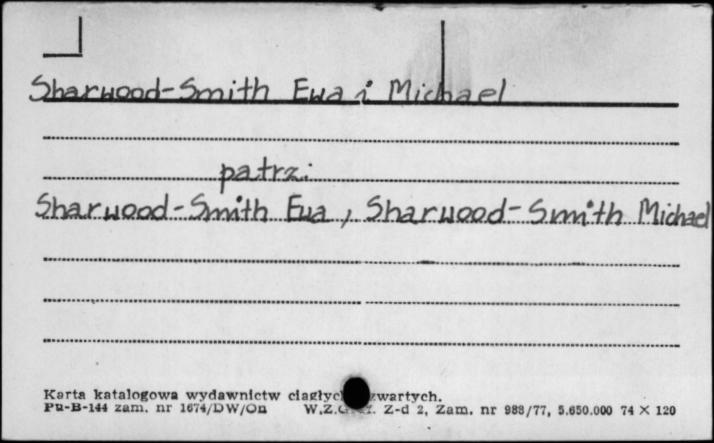 Sharwood-Smith Ewa i Michael
patrz:
Sharwood-Smith Ewa, Sharwood-Smith Michael
Karta katalogowa wydawnictw ciągłych zwartych.
Pu-B-144 zam. nr 1674/DW/On W.Z.G. Z-d 2, Zam. nr 988/77, 5.650.000 74 × 120